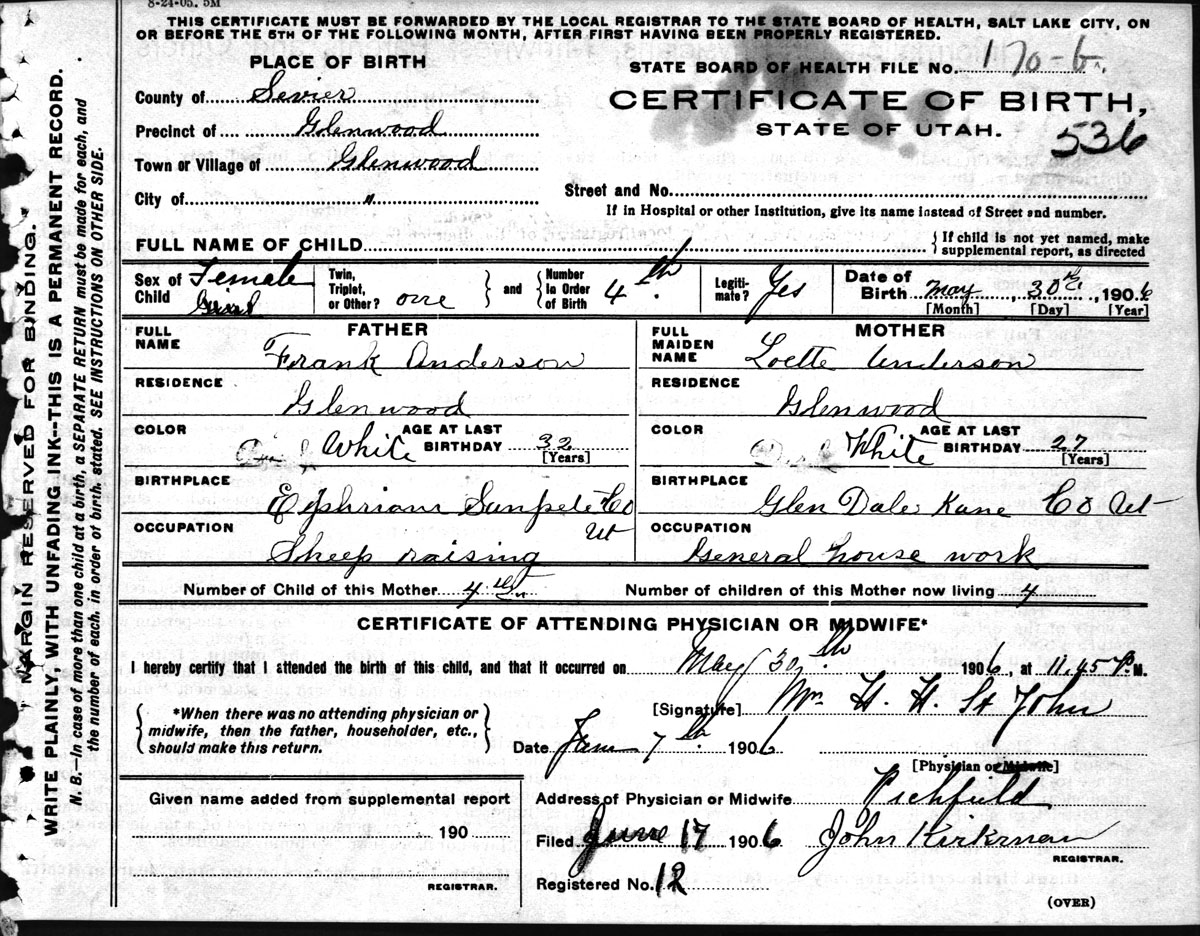 8-24-05. 5M
THIS CERTIFICATE MUST BE FORWARDED BY THE LOCAL REGISTRAR TO THE STATE BOARD OF HEALTH, SALT LAKE CITY, ON
OR BEFORE THE 5TH OF THE FOLLOWING MONTH, AFTER FIRST HAVING BEEN PROPERLY REGISTERED.
MARGIN RESERVED FOR BINDING.
WRITE PLAINLY, WITH UNFADING INK--THIS IS A PERMANENT RECORD.
N. B.—In case of more than one child at a birth, a SEPARATE RETURN must be made for each, and
the number of each, in order of birth, stated. SEE INSTRUCTIONS ON OTHER SIDE.
PLACE OF BIRTH
County of Sevier
Precinct of Glenwood
Town or Village of Glenwood
City of "
STATE BOARD OF HEALTH FILE No. 170-6
CERTIFICATE OF BIRTH,
STATE OF UTAH.
536
Street and No.
If in Hospital or other Institution, give its name instead of Street and number.
FULL NAME OF CHILD
{ If child is not yet named, make
supplemental report, as directed
Sex of Child Female
Twin, Triplet, or Other? one } and { Number In Order of Birth 4th
Legiti-mate? Yes
Date of Birth May, 30th, 1906
[Month] [Day] [Year]
FATHER
FULL NAME Frank Anderson
RESIDENCE
Glenwood
COLOR White AGE AT LAST BIRTHDAY 32
[Years]
BIRTHPLACE
Ephriam Sanpete Co
Ut
OCCUPATION
Sheep raising
MOTHER
FULL MAIDEN NAME Loette Anderson
RESIDENCE
Glenwood
COLOR White AGE AT LAST BIRTHDAY 27
[Years]
BIRTHPLACE
Glen Dale Kane Co Ut
OCCUPATION
General house work
Number of Child of this Mother 4th
Number of children of this Mother now living 4
CERTIFICATE OF ATTENDING PHYSICIAN OR MIDWIFE*
I hereby certify that I attended the birth of this child, and that it occurred on May 30th 1906, at 11.45 P.M.
{ *When there was no attending physician or
midwife, then the father, householder, etc.,
should make this return. }
[Signature] H. H. St John
Date 7th 1906
[Physician or Midwife]
Given name added from supplemental report
190
REGISTRAR.
Address of Physician or Midwife Richfield
Filed June 17 1906 John Kirkman
REGISTRAR.
Registered No. 12
(OVER)